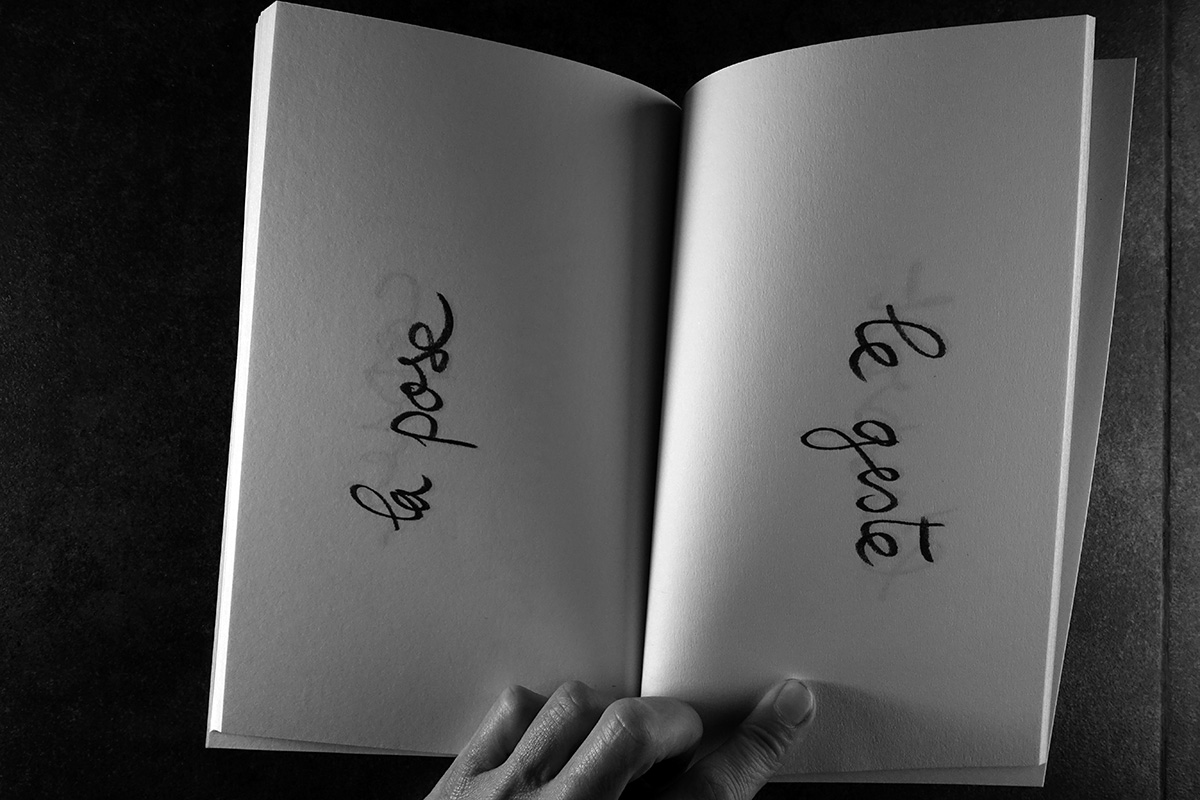 la pose
le geste